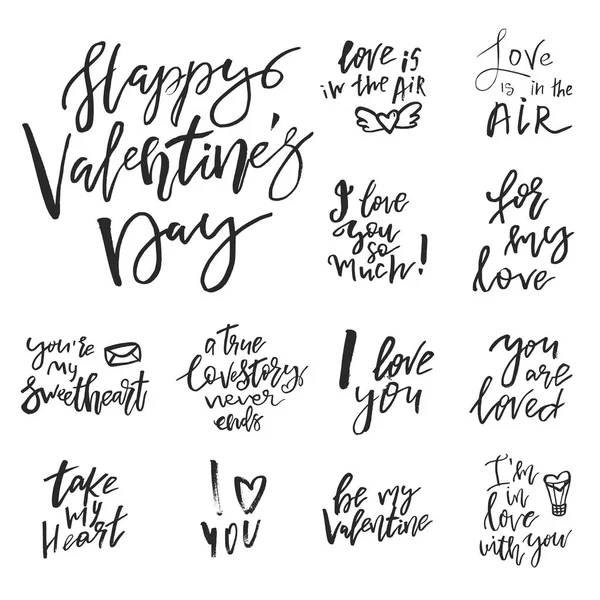 Happy
Valentine's
Day
love is
in the AiR
Love
is in the
AiR
I love
you
so
much!
for
my
love
you're
my
sweetheart
a true
lovestory
never
ends
I love
you
you
are
loved
take
my
Heart
I
YOU
be my
Valentine
I'm
in
love
with you